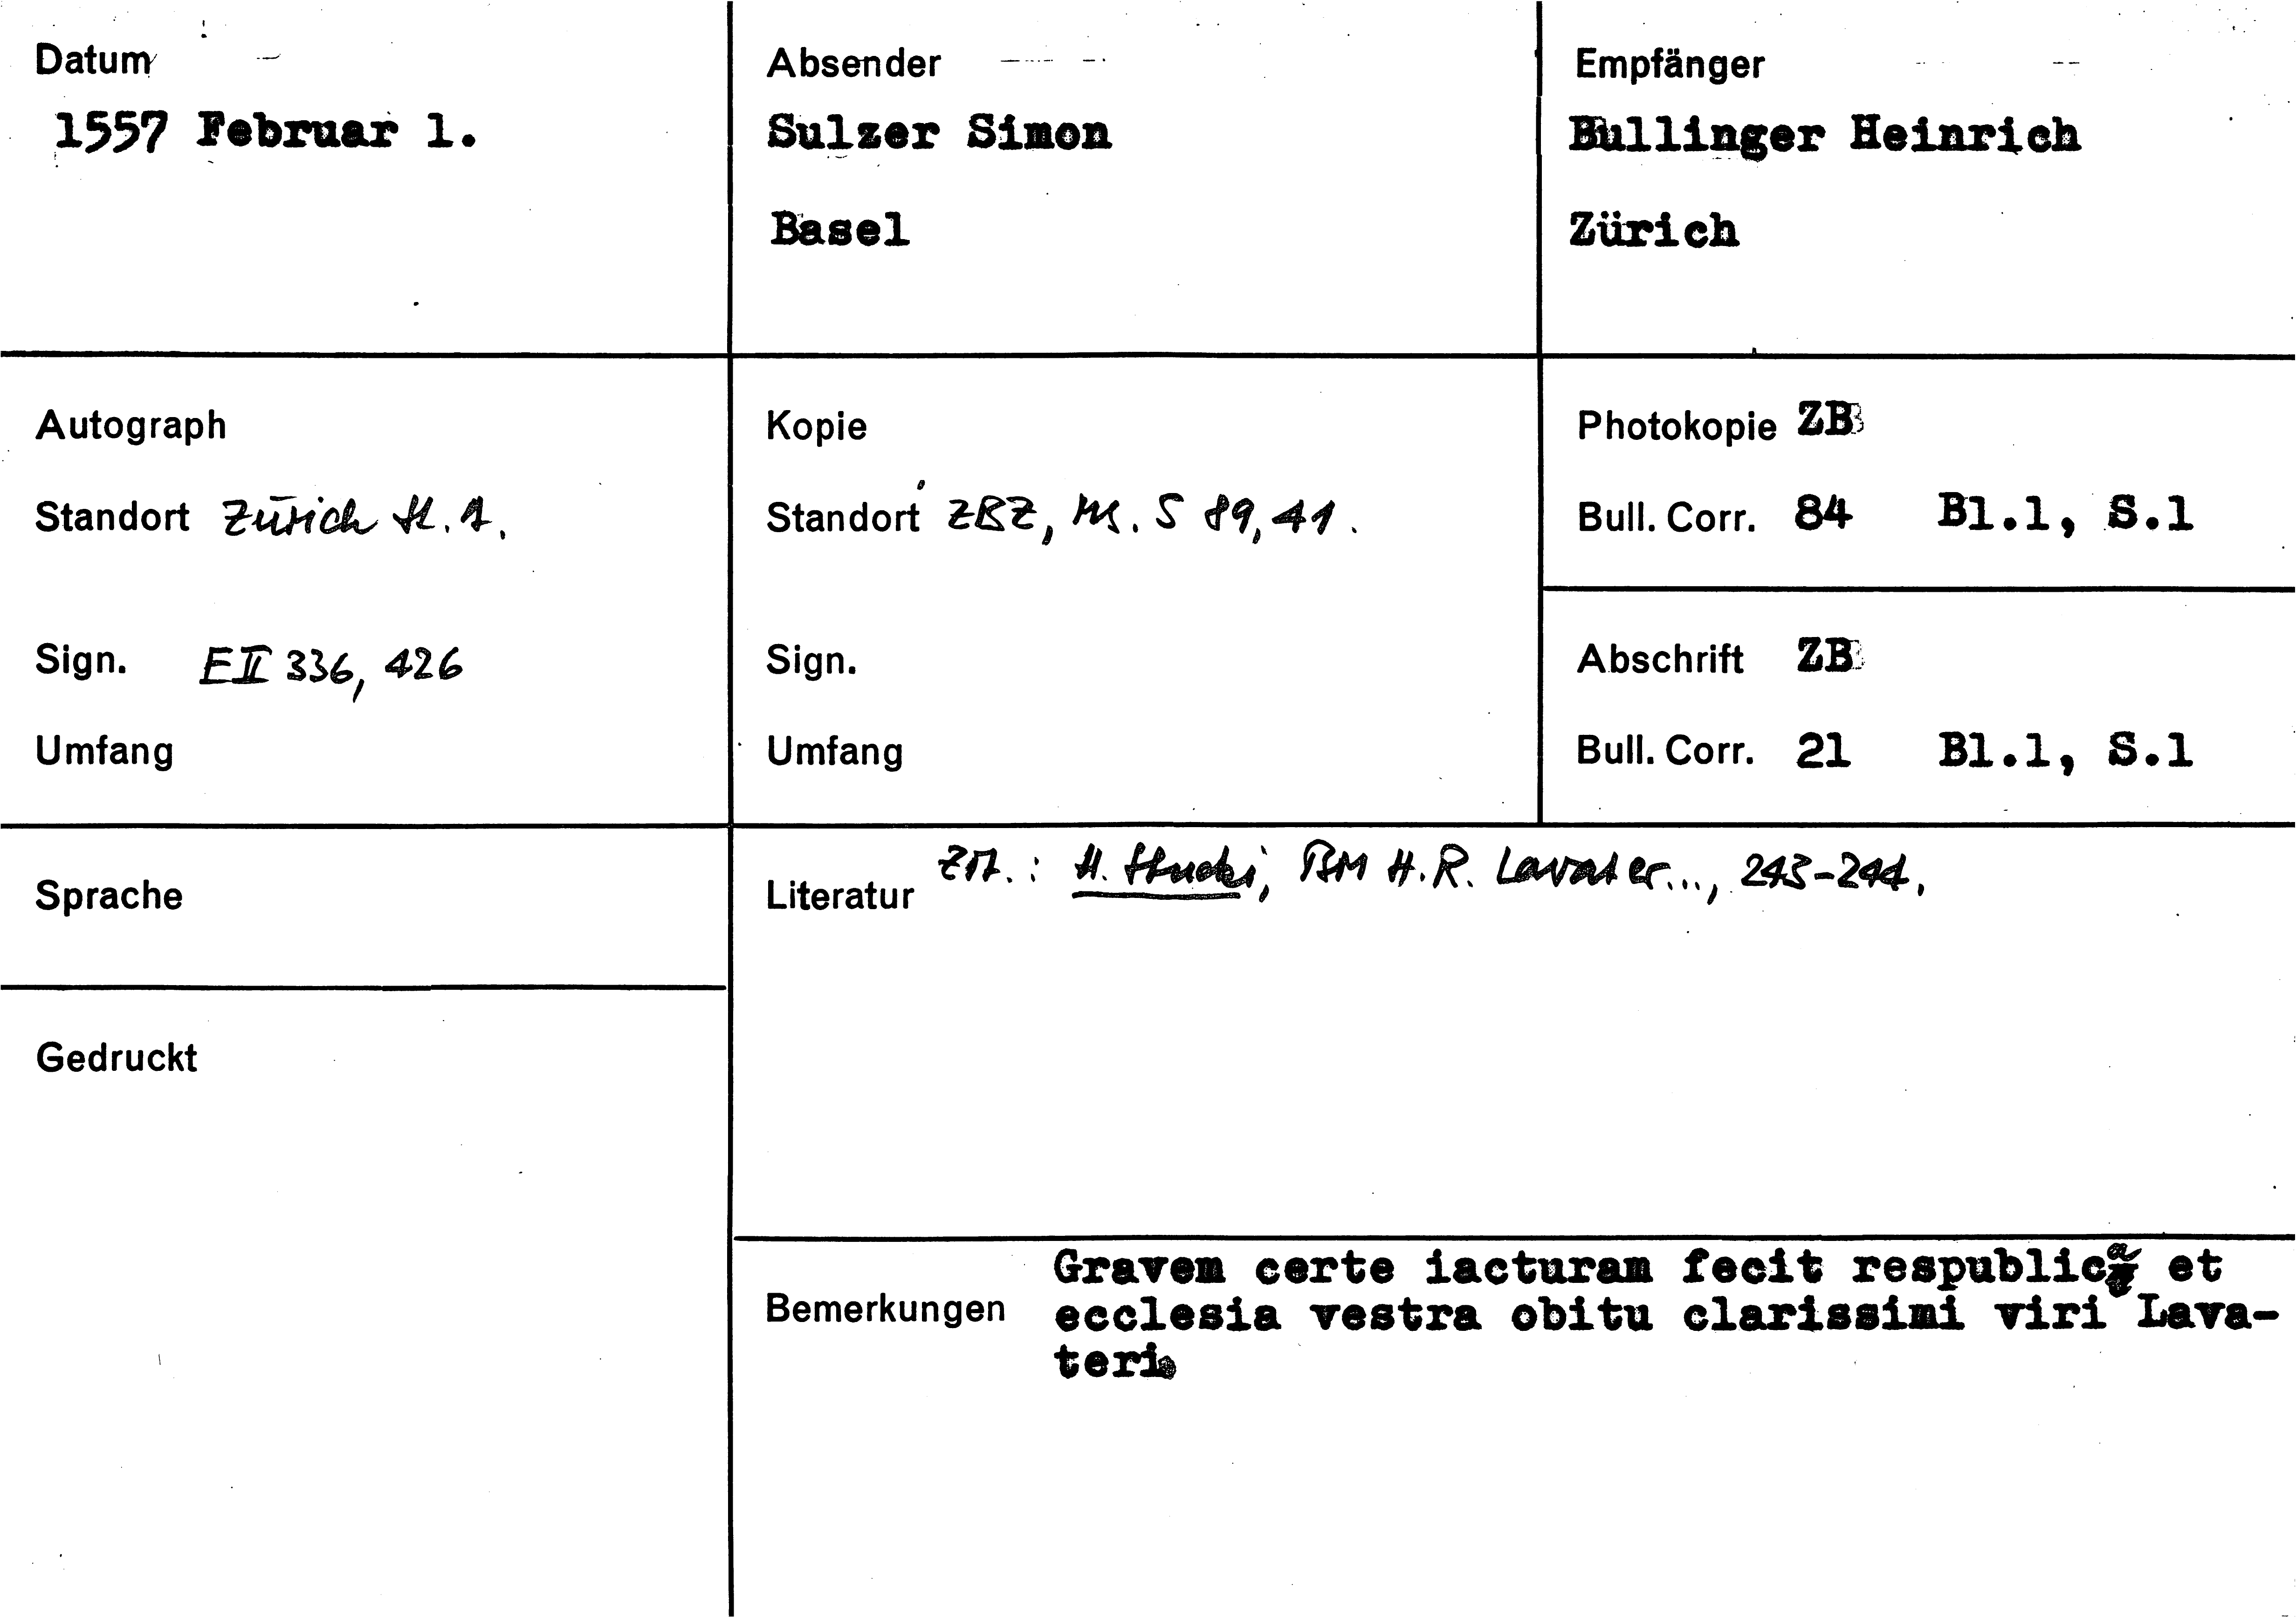 Datum
1557 Februar 1.
Absender
Sulzer Simon
Basel
Empfänger
Bullinger Heinrich
Zürich
Autograph
Standort Zürich St. A.
Sign. E II 336, 426
Umfang
Kopie
Standort ZBZ, Ms. S 89, 41.
Sign.
Umfang
Photokopie ZB
Bull. Corr. 84 Bl.1, S.1
Abschrift ZB
Bull. Corr. 21 Bl.1, S.1
Sprache
Gedruckt
Literatur Zit.: H. Stucki, BM H.R. Lavater..., 243-244.
Bemerkungen
Gravem certe iacturam fecit respublica et
ecclesia vestra obitu clarissimi viri Lava-
teri.